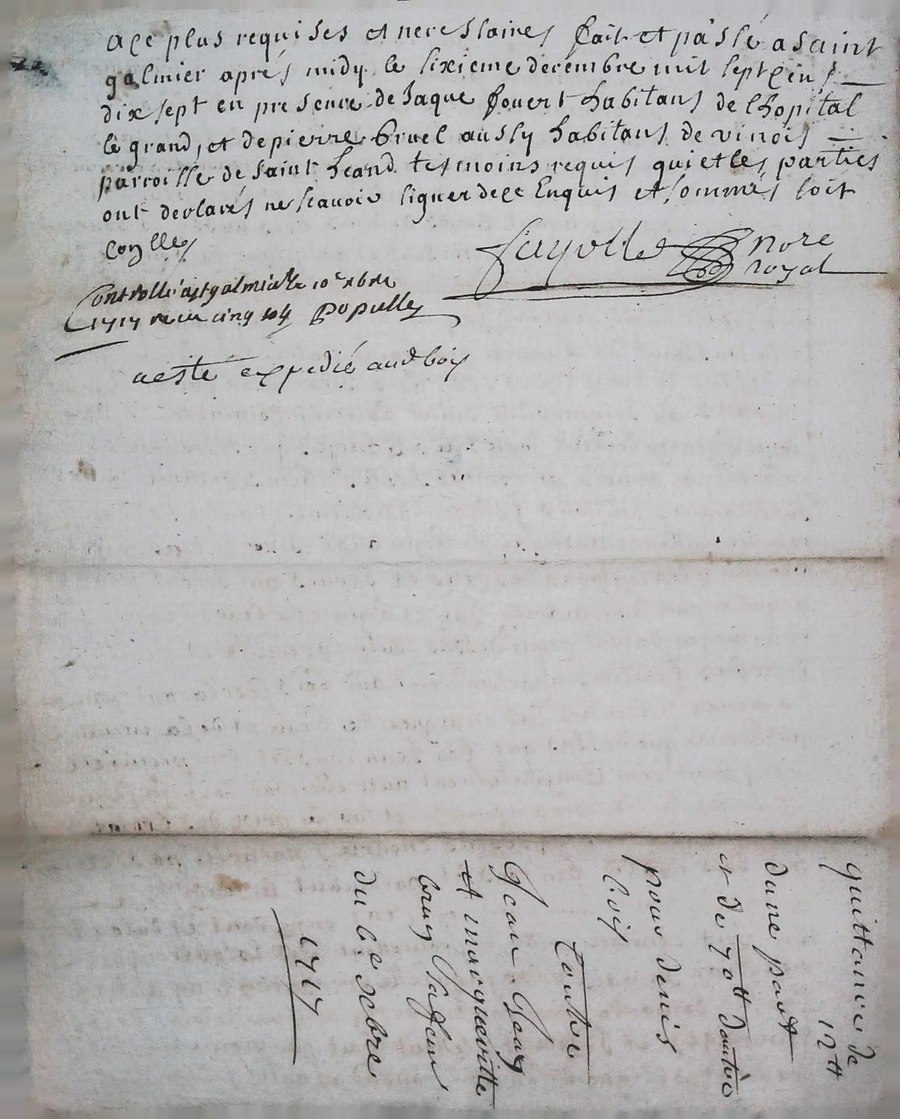 a ce plus requises et necessaires fait et passé a saint
galmier aprés midy le sixieme decembre mil sept cens
dix sept en presence de Jaque fouert habitans de lhopital
le grand, et de pierre bruel aussy habitans de vinois
parroisse de saint heand tesmoins requis qui et les parties
ont declarés ne scavoir signer de ce Enquis et sommés soit
Fayolle nore
royal
Controllé a st galmier le 10e xbre
1717 cinq Populle
a esté expedié aud bois
quittance de
12tt
dune part
et de 70tt dautre
pour denis
bois
Contre
Jean
et margueritte
bruy sa feme
du 6e xbre
1717